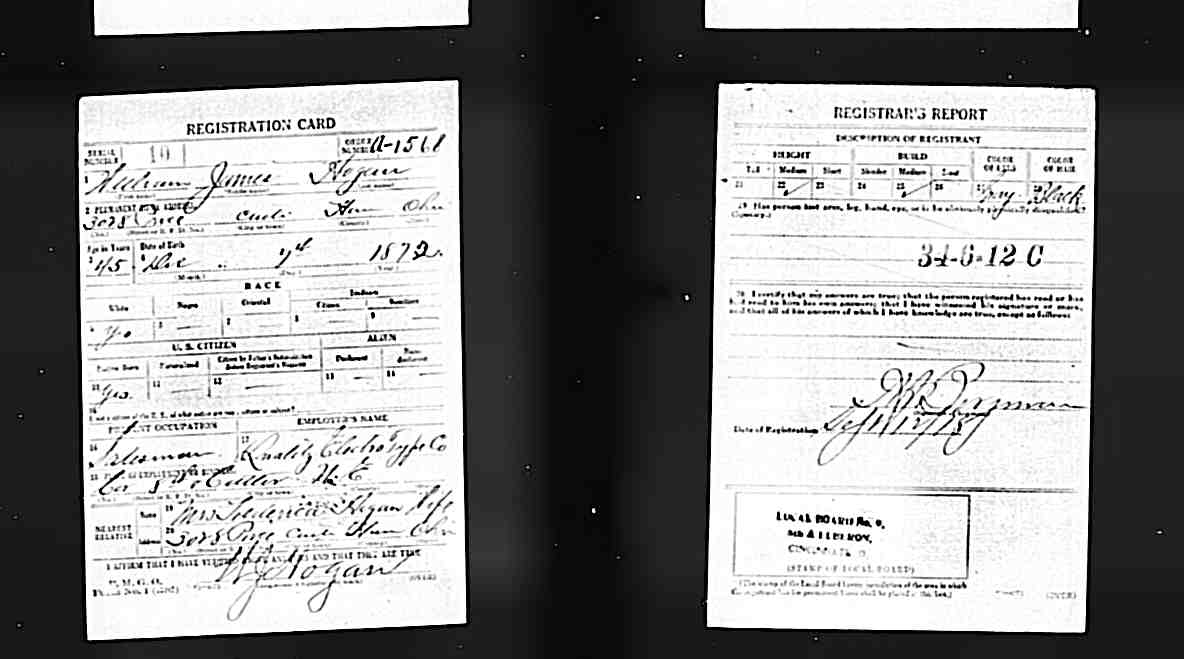 REGISTRATION CARD
SERIAL NUMBER 10 ORDER NUMBER A-1561
William James Hogan
2 PERMANENT HOME ADDRESS
3028 Cinti Ham Ohio
Age in Years Date of Birth
45 Dec 7th 1872
(Month) (Day) (Year)
RACE
White Negro Oriental Indian
Citizen
4 Yes 5 7 8 9
U. S. CITIZEN ALIEN
Native Born Naturalized Citizen by Father's Naturalization Before Registrant's Majority Declarant Non-declarant
10 Yes. 11 12 13 14
PRESENT OCCUPATION EMPLOYER'S NAME
16 Salesman 17 Quality Electrotype Co
Cor 8th & Cutter
NEAREST RELATIVE Name 19 Mrs Frederica Hogan Wife
Address 20 3028 Cinti Ham Ohio
I AFFIRM THAT I HAVE VERIFIED AND THAT THEY ARE TRUE
P. M. G. O.
Form No. 1 W J Hogan (OVER)
REGISTRAR'S REPORT
DESCRIPTION OF REGISTRANT
HEIGHT BUILD COLOR OF EYES COLOR OF HAIR
Tall Medium Short Slender Medium Stout
21 22 23 24 25 26 27 Gray 28 Black
29 Has person lost arm, leg, hand, eye, or is he obviously physically disqualified?
(Specify.)
34-6-12 C
30 I certify that my answers are true; that the person registered has read or has
had read to him his own answers; that I have witnessed his signature or mark,
and that all of his answers of which I have knowledge are true, except as follows:
Date of Registration Sept 12/18
LOCAL BOARD No. 9,
8th & ELBERON,
CINCINNATI, O.
(STAMP OF LOCAL BOARD)
(The stamp of the Local Board having jurisdiction of the area in which
the registrant has his permanent home shall be placed in this box.)
(OVER)